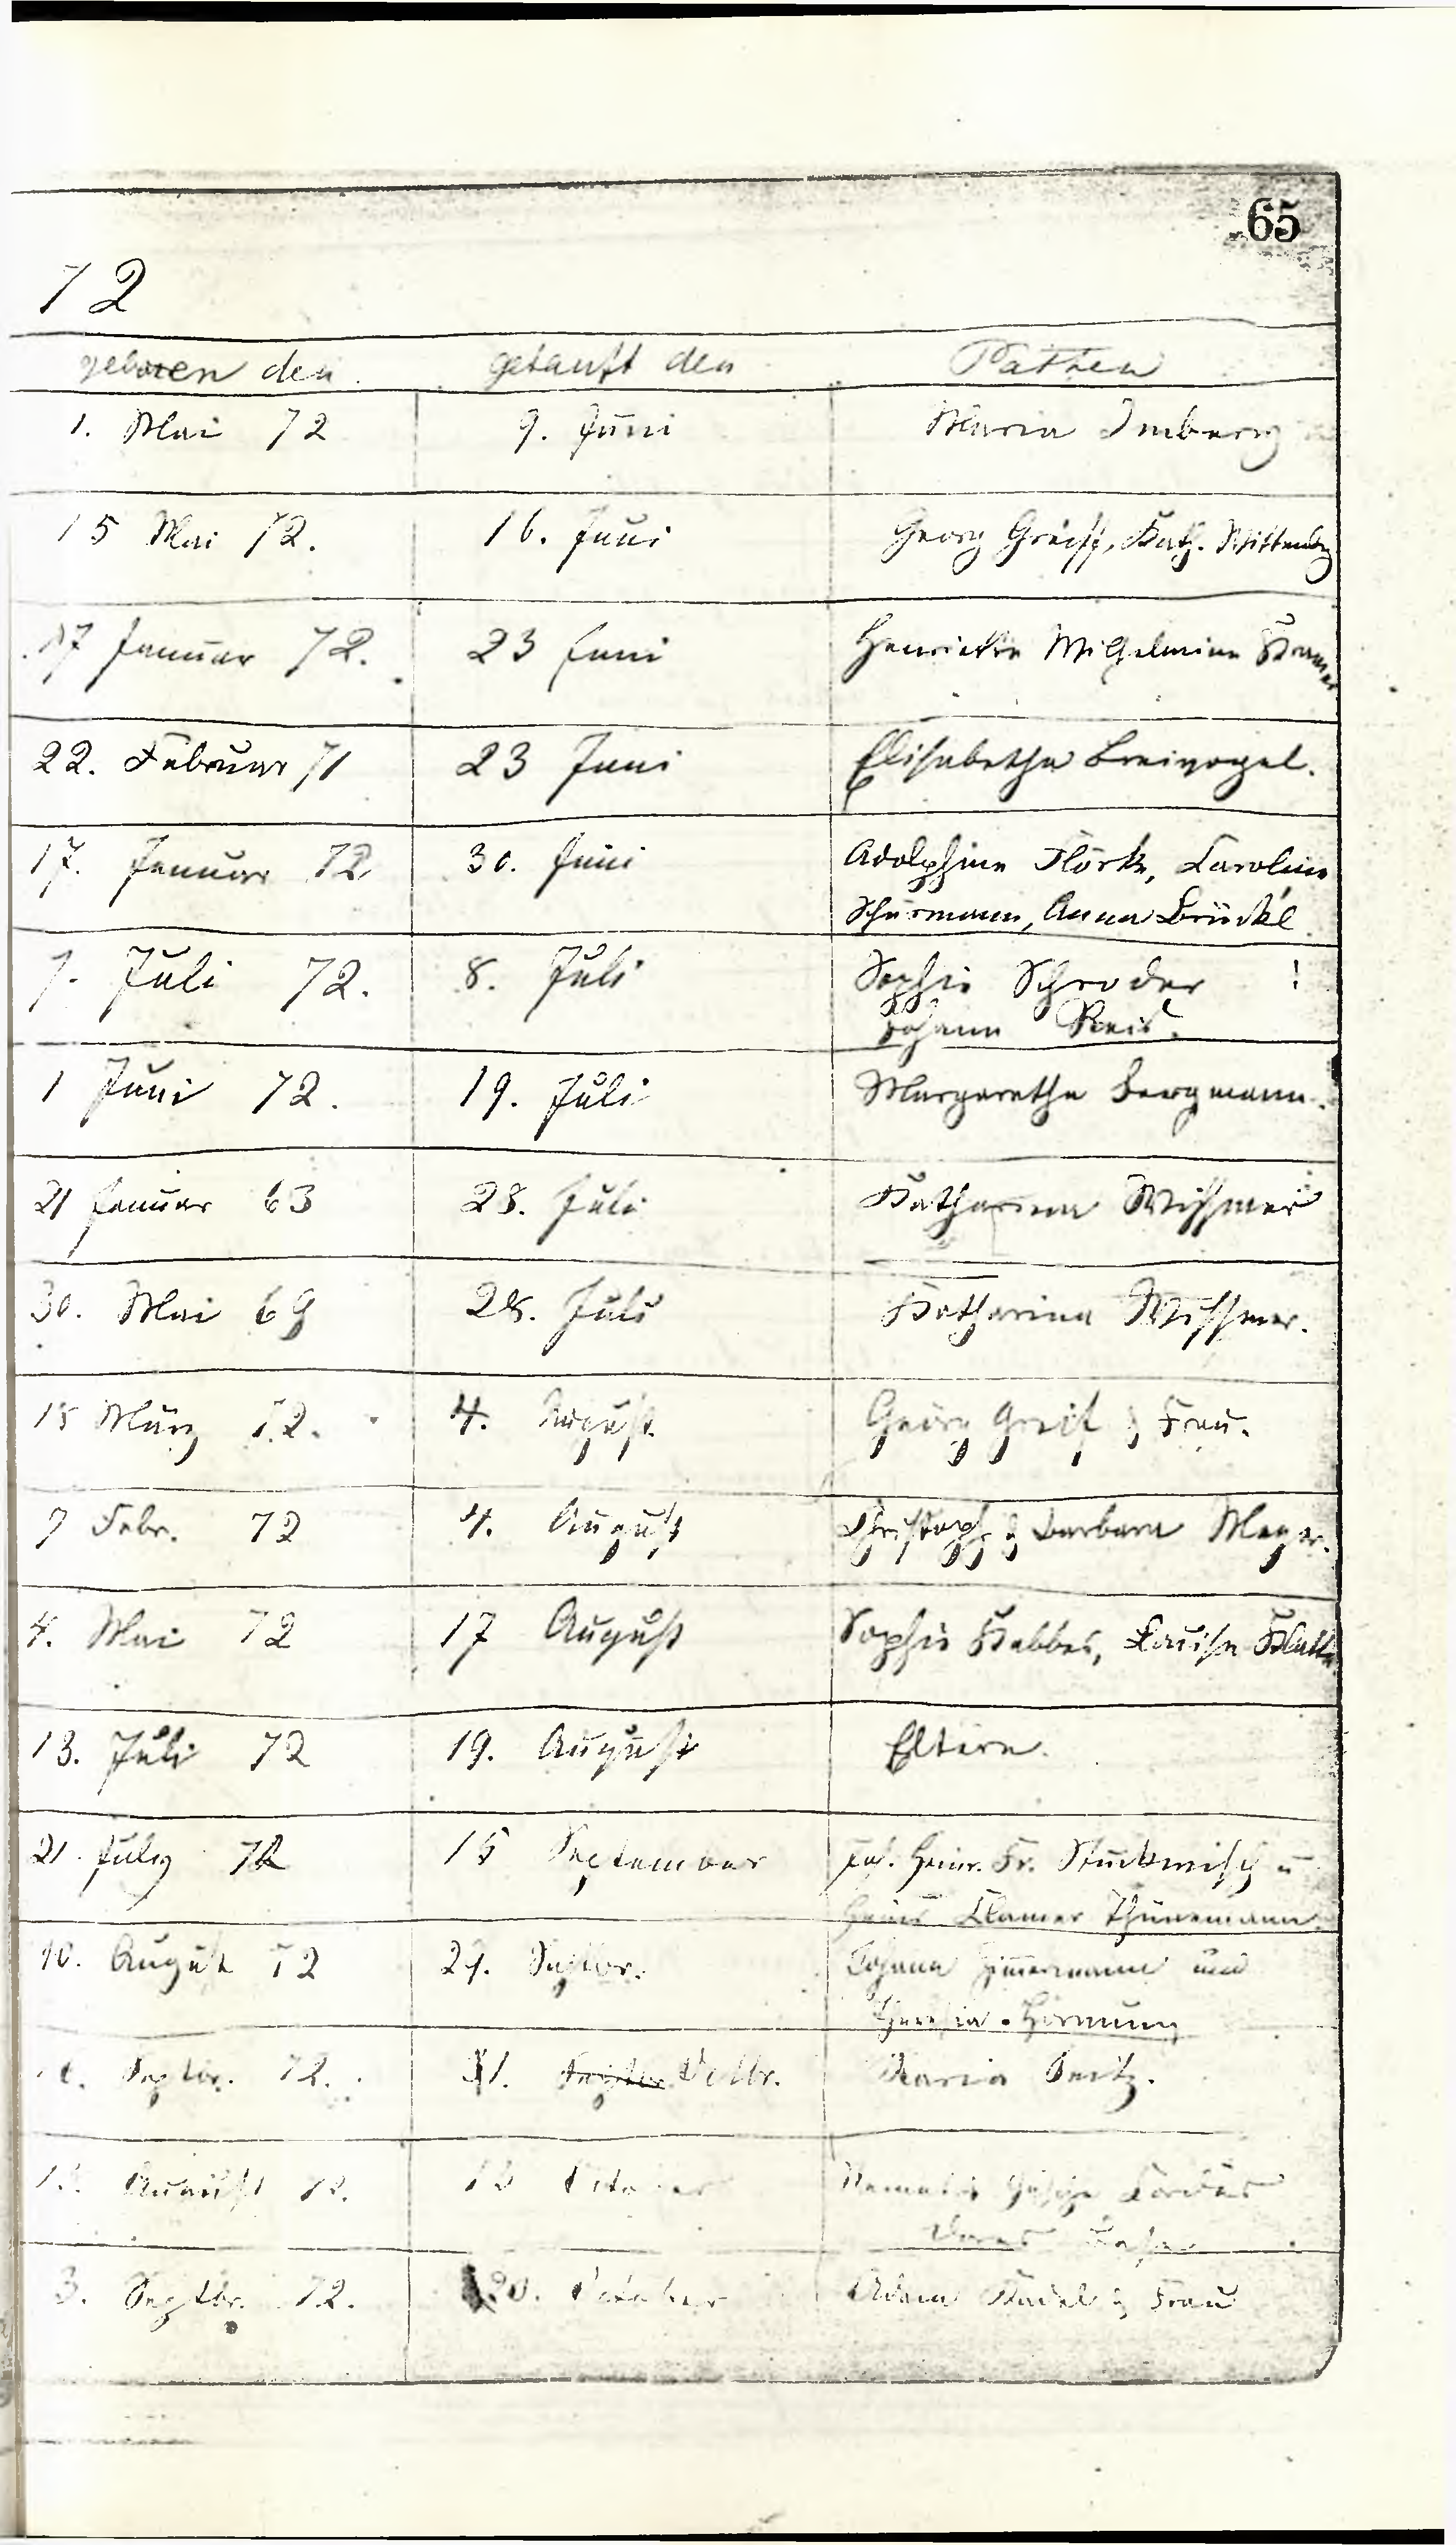 65
72
geboren den getauft den Pathen
1. Mai 72 9. Juni Maria Imberg
15 Mai 72. 16. Juni Georg Greiff, Kath. Wittenbg
17 Januar 72. 23 Juni Henriette Wilhelmine Kramer
22. Februar 71 23 Juni Elisabetha Breivogel.
17. Januar 72 30. Juni Adolphine Flörke, Caroline
Schürmann, Anna Brückl
7. Juli 72. 8. Juli Sophie Schroder
Johann Reis.
1 Juni 72. 19. Juli Margaretha Bergmann.
21 Januar 63 28. Juli Katharina Wissmer
30. Mai 69 28. Juli Katharina Wissmer.
15 März 72. 4. August Georg Greif & Frau.
7 Febr. 72 4. August Christoph & Barbara Meyer.
4. Mai 72 17 August Sophie Kabbes, Louise Klatte
13. Juli 72 19. August Eltern.
21. July 72 15 September Joh. Heinr. Fr. Stuckwisch u
Clamer Thünemann.
10. August 72 29. Septbr. Johann Zimmermann und
Theresia Hornung
Septbr. 72. Octbr. Maria Seitz.
August 72. October
3. Septbr. 72. 20. October Adam & Frau